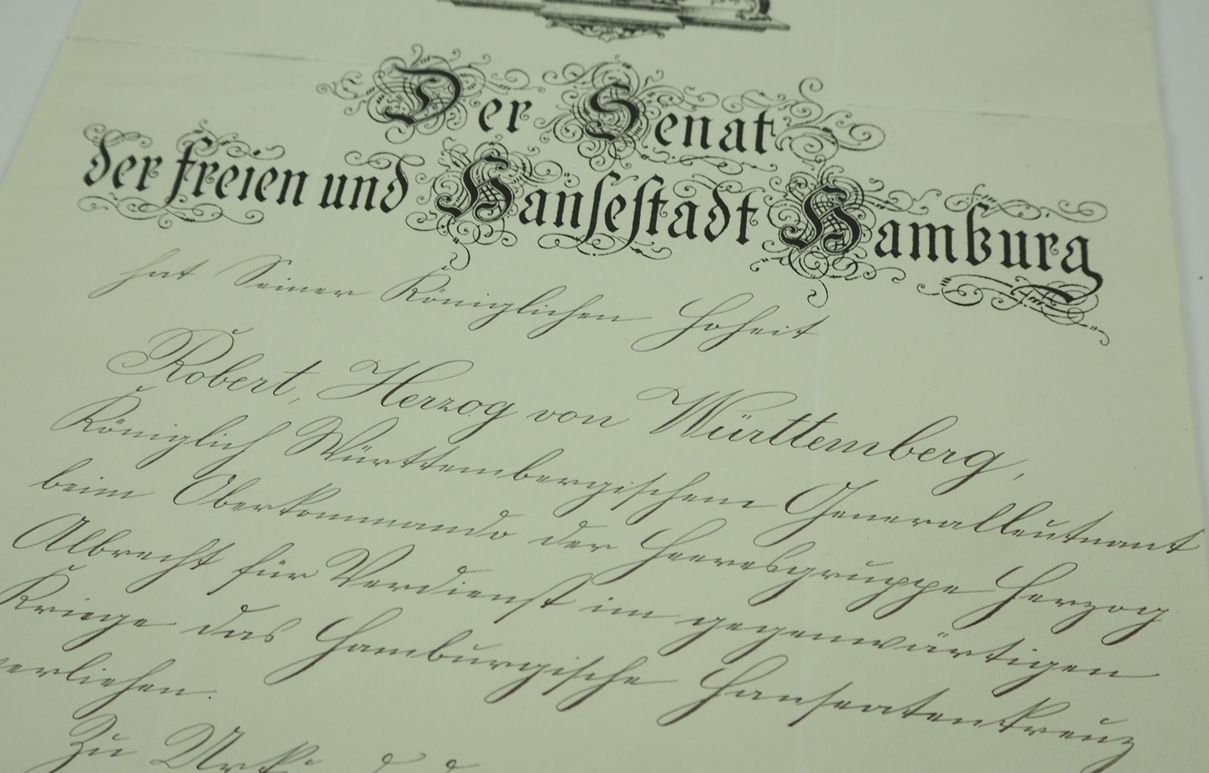 Der Senat
der freien und Hansestadt Hamburg
hat Seiner Königlichen Hoheit
Robert, Herzog von Württemberg,
Königlich Württembergischem Generalleutnant
beim Oberkommando der Heeresgruppe Herzog
Albrecht für Verdienst im gegenwärtigen
Kriege das Hamburgische Hanseatenkreuz
verliehen.
Zu